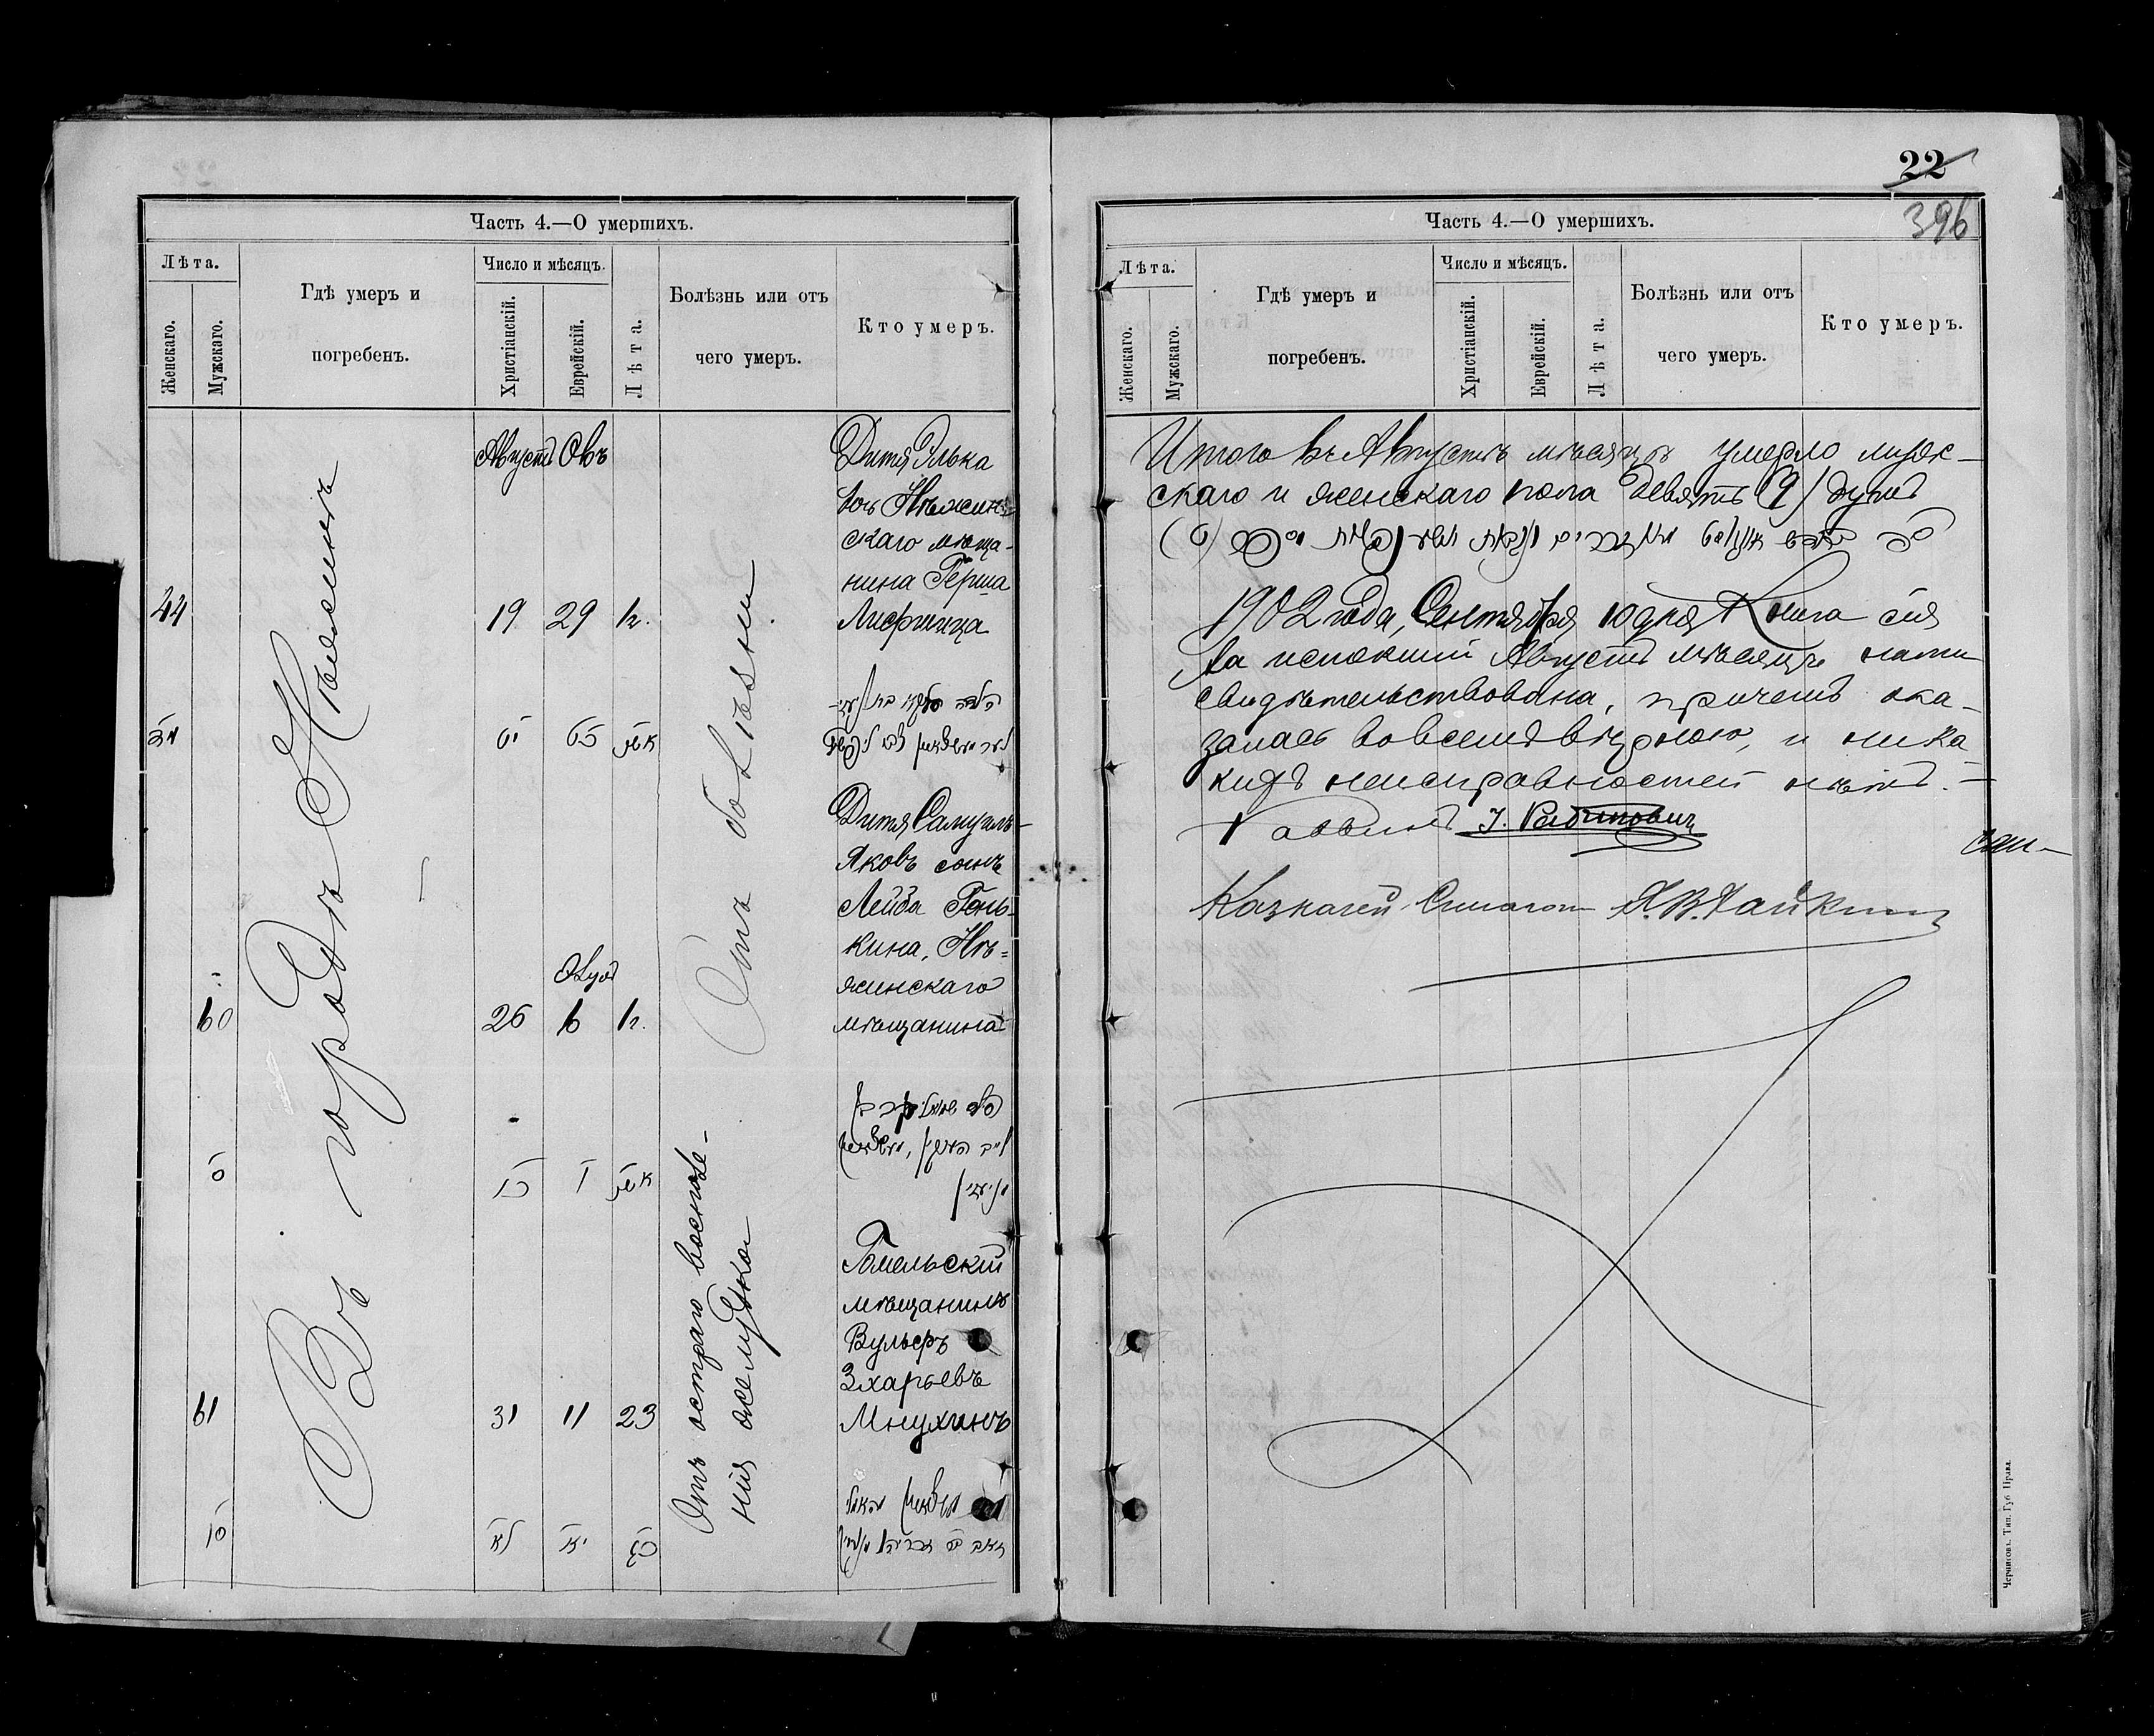 22
396
Часть 4.—О умершихъ.
Лѣта.
Женскаго.
Мужскаго.
Гдѣ умеръ и
погребенъ.
Число и мѣсяцъ.
Христіанскій.
Еврейскій.
Лѣта.
Болѣзнь или отъ
чего умеръ.
Кто умеръ.
Въ городѣ Нѣжинѣ
Отъ болѣзни
Августъ Овъ
44
19 29 1г.
Дитя Элька
дочь Нѣжин-
скаго мѣща-
нина Герша
Лифшица
יט כט
Элулъ
60
26 6 1г.
Дитя Самуилъ-
Яковъ сынъ
Лейба Гень-
кина, Нѣ-
жинскаго
мѣщанина
ס
כו ו
Отъ остраго воспале-
нія желудка
61
31 11 23
Гомельскій
мѣщанинъ
Вульфъ
Зхарьевъ
Мнухинъ
לא יא כג
Часть 4.—О умершихъ.
Лѣта.
Женскаго.
Мужскаго.
Гдѣ умеръ и
погребенъ.
Число и мѣсяцъ.
Христіанскій.
Еврейскій.
Лѣта.
Болѣзнь или отъ
чего умеръ.
Кто умеръ.
Итого въ Августѣ мѣсяцѣ умерло муж-
скаго и женскаго пола девять (9) душъ
1902 года, Сентября 10 дня Книга сія
за истекшій Августъ мѣсяцъ нами
свидѣтельствована, причемъ ока-
залась во всемъ вѣрною, и ника-
кихъ неисправностей нѣтъ.—
Раввинъ І. Рабиновичъ
Казначей Синагоги Х. В. Хайкинъ
Черниговъ. Тип. Губ Правл.